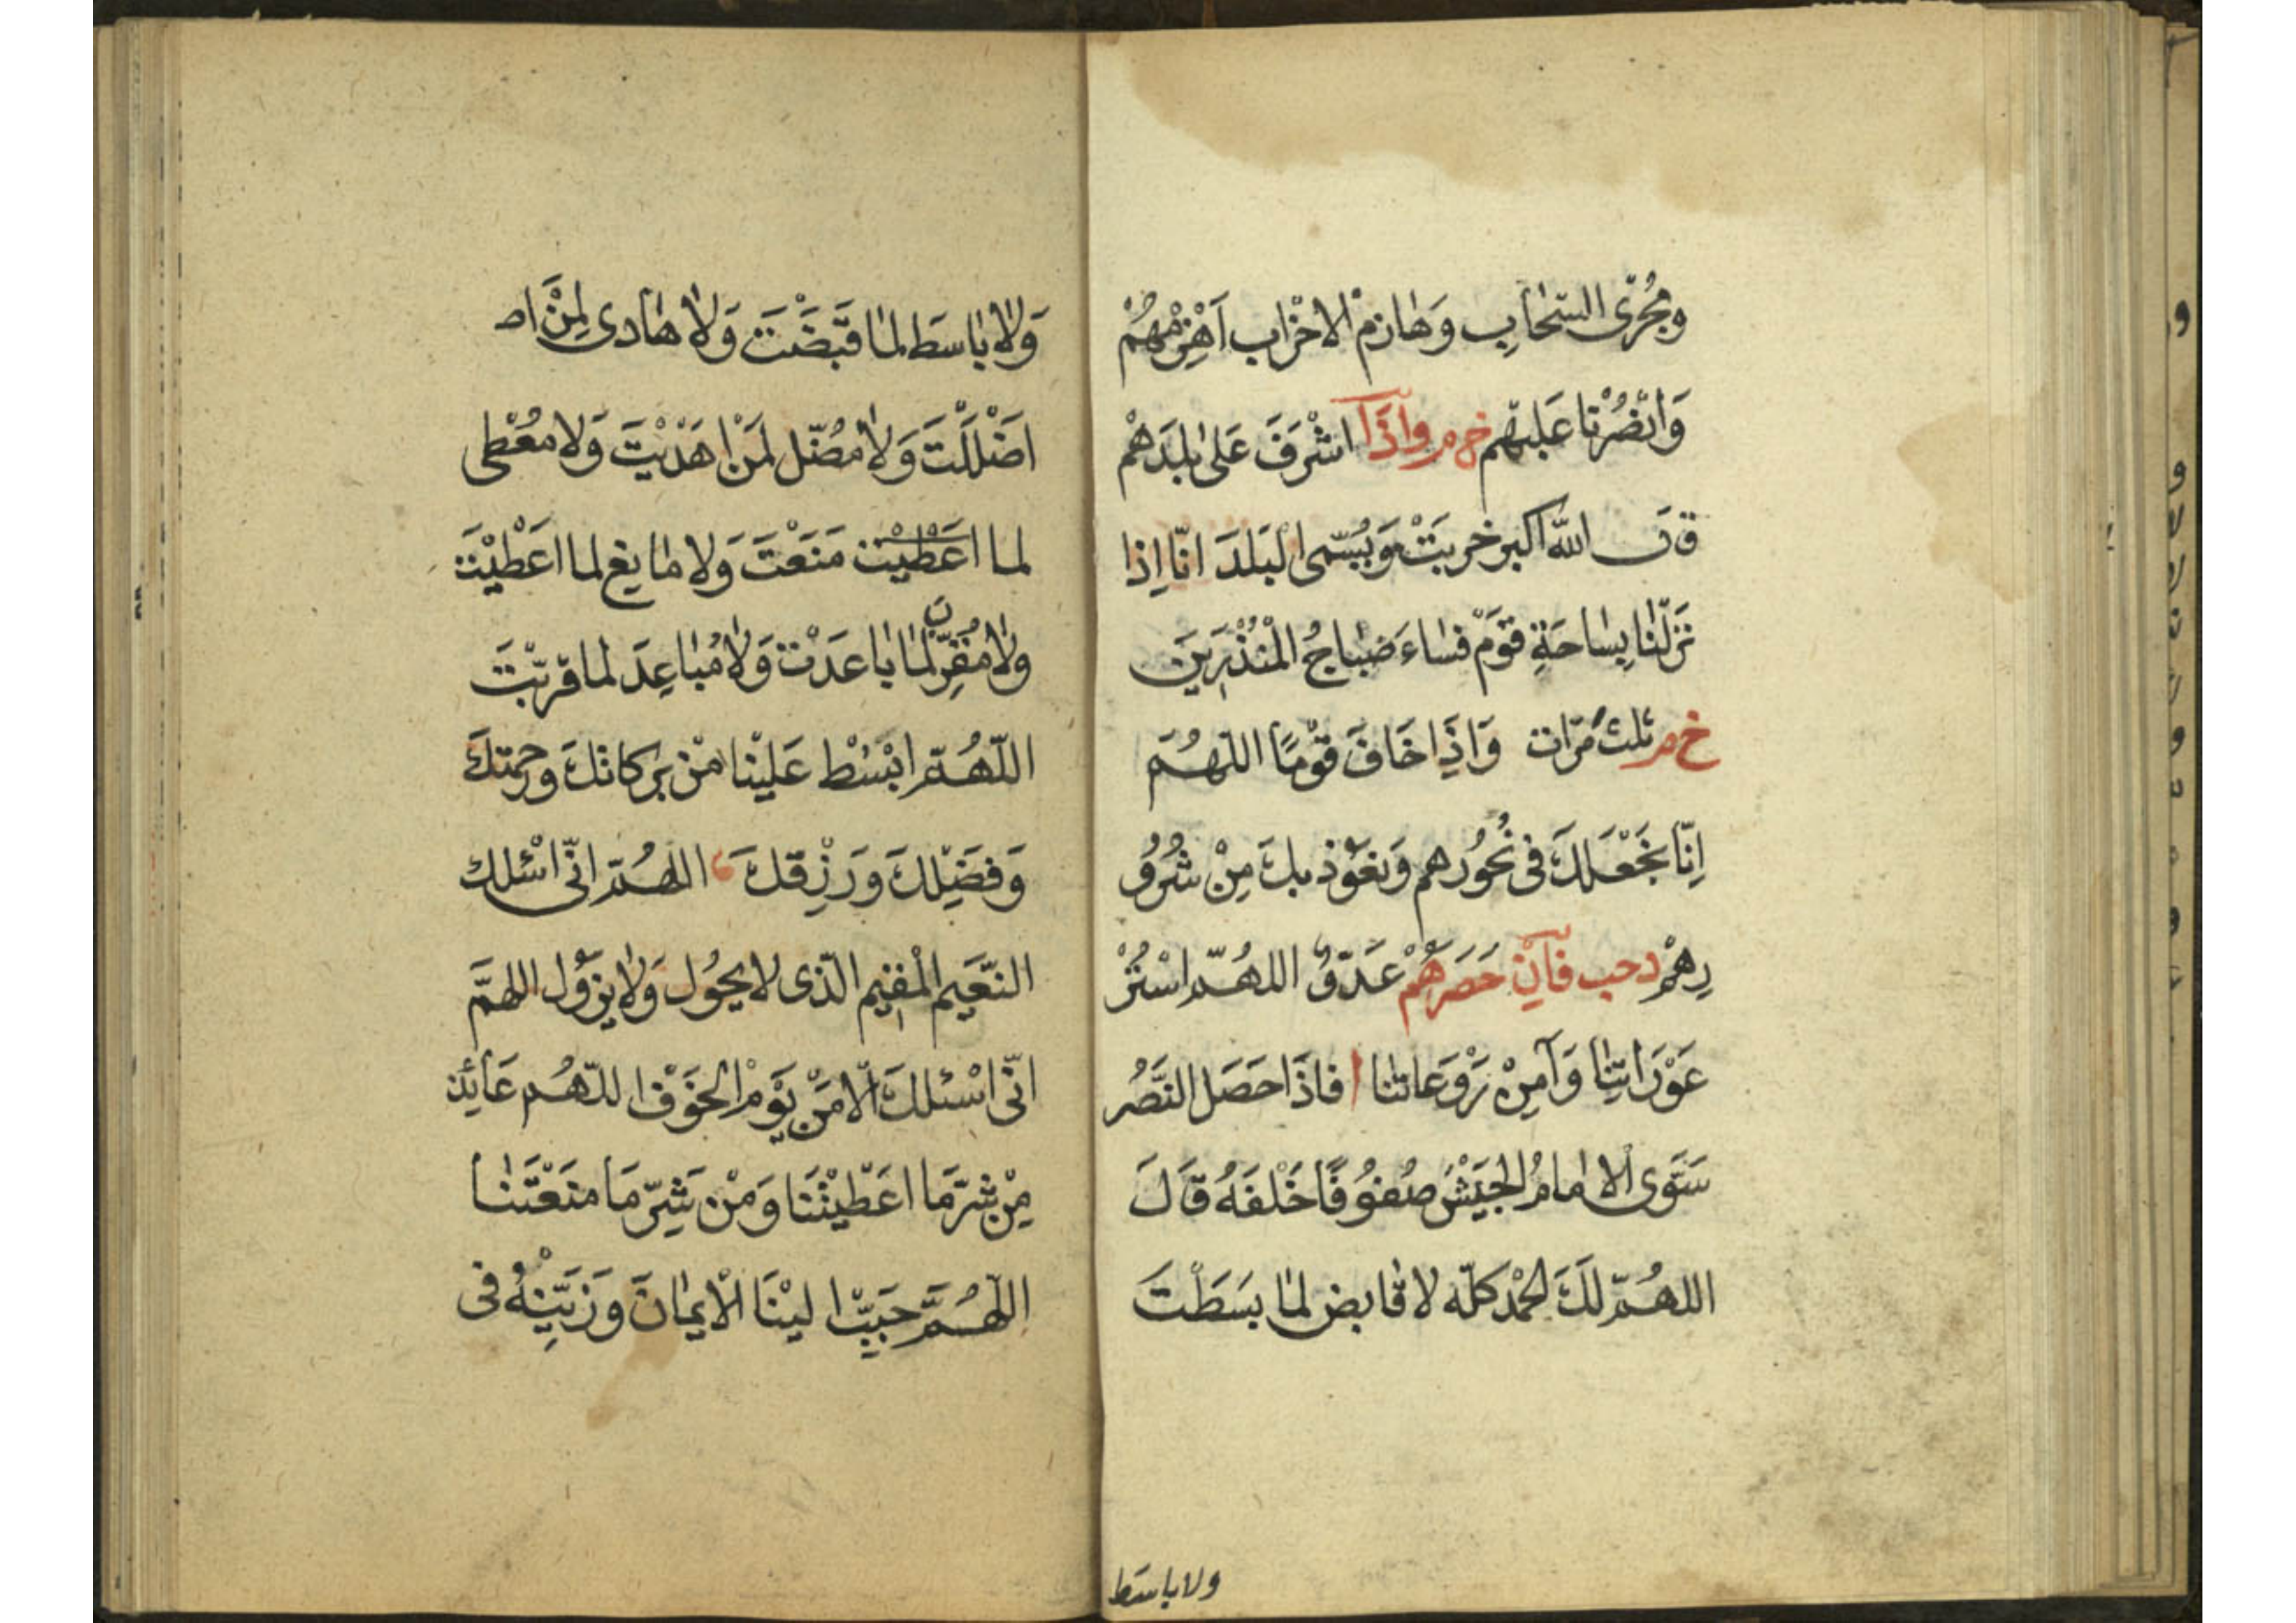 ومُجْرِى السَّحَابِ وَهَازِمَ الاحْزَابِ اَهْزِمْهُمْ
وَانْصُرْنَا عَلَيْهِم خ م واِذَا اشْرَفَ عَلى بَلَدَهمْ
قال الله اكبر خربَتْ وَيُسَمى البَلَدَ انّا اِذا
نَزَلْنَا بِسَاحَةِ قَوْمٍ فَسَاءَ صَبَاحُ المُنْذَرِينَ
خ م ثلث مَرّات وَاذِا خَافَ قَوْمًا اللهُمَ
اِنّا نجْعَلكَ فى نُحُورهم وَنعَوُذ بكَ مِنْ شُرُو
رِهمْ د حب فَاِنْ حَصَرَهُمْ عَدوٌّ اللهُمّ اسْتُرْ
عَوْرَاتِنَا وَآمِنْ رَوْعَاتنا فاذَا حَصَل النَصْرُ
سَوّى الامَامُ الجَيْشَ صُفوُفًا خَلفَهُ قَالَ
اللهُمّ لَكَ الحَمْد كلّه لا قَابض لمَا بَسَطْتَ
ولا باسط
وَلا بَاسَط لمَا قَبَضْتَ وَلا هَادى لِمَنْ اض
اضْلَلْتَ وَلا مُضّل لمَنْ هَدَيْتَ وَلا مُعْطى
لما اعَطْيْت مَنَعْتَ وَلا مَا نِع لما اعَطْيْتَ
ولا مُقَرّبَ لمَا بَاعَدْتَ وَلا مُبَاعِدَ لما قرّبْتَ
اللّهُمّ ابْسُطْ عَلَيْنَا مْن بَركاتكَ ورحمتكَ
وَفضَيْلكَ وَرَزْقكَ اللهُمّ انّى اسْئلك
النَّعَيم المُقيم الّذى لا يحُول وَلا يزوُل اللهمَّ
انّى اسْئلكَ الامَنْ يَوْم الخَوْف اللّهُم عَائِذ
مِنْ شرّمَا اعَطْيْتَنَا وَمْن شَرّمَا مَنَعْتَنَا
اللّهُمَّ حَبَبّ اليْنَا الْايمَانَ وَزَيّنِهُ فى